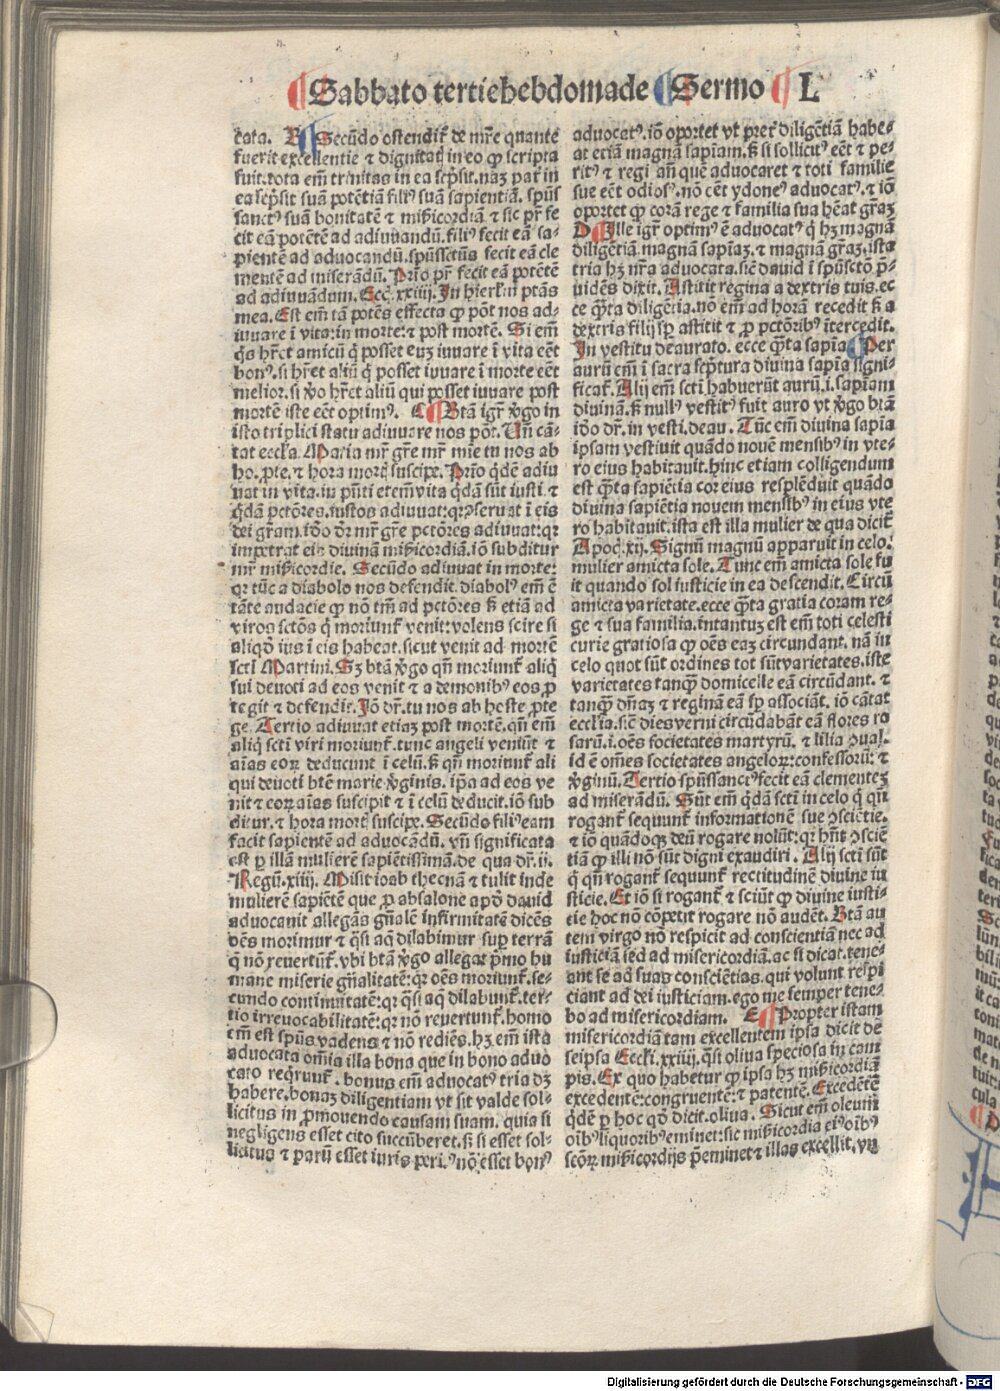 Sabbato tertie hebdomade Sermo L
cata. B Secūdo ostendit̄ de mr̄e quante
fuerit excellentie ⁊ dignitatꝭ in eo ꝙ scripta
fuit. tota em̄ trinitas in ea scp̄sit. naꝫ pat̄ in
ea scp̄sit suā potētiā filiꝰ suā sapientiā. spūs
sanctꝰ suā bonitatē ⁊ mīsericordiā ⁊ sic pr̄ fe
cit eā potētē ad adiuuandū. filiꝰ fecit eā sa-
pientē ad aduocandū. spūssctūs fecit eā cle
mentē ad miserādū. Prīo pr̄ fecit eā potētē
ad adiuuādum. Ecc̄. xxiiij. In hierl̄m ptās
mea. Est em̄ tā potēs effecta ꝙ pōt nos ad-
iuuare ī vita: in morte: ⁊ post mortē. Si em̄
q̄s hr̄et amicū q̄ posset euꝫ iuuare ī vita eēt
bonꝰ. si hr̄et aliū q̄ posset iuuare ī morte eēt
melior. si v̄o hr̄et aliū qui posset iuuare post
mortē iste eēt optimꝰ. C Btā igr̄ v̄go in
isto triplici statu adiuuare nos pōt. Un̄ cā-
tat eccl̄a. Maria mr̄ gr̄e mr̄ mīe tu nos ab
ho. pte. ⁊ hora mortꝭ suscipe. Prīo q̄dē adiu
uat in vita. in pn̄ti etem̄ vita q̄dā sūt iusti ⁊
q̄dā pctōres. iustos adiuuat: qꝛ ꝯseruat ī eis
dei gr̄am. iōo dr̄ mr̄ gr̄e pctōres adiuuat: qꝛ
impetrat eis diuinā mīsericordiā. iō subditur
mr̄ mīsericordie. Secūdo adiuuat in morte:
qꝛ tūc a diabolo nos defendit. diabolꝰ em̄ ē
tāte audacie ꝙ nō tm̄ ad pctōres sꝫ etiā ad
viros sctōs q̄ moriunt̄ venit: volens scire si
aliqd̄ ius ī eis habeat. sicut venit ad mortē
scti Martini. Sꝫ btā v̄go qn̄ moriunt̄ aliq̄
sui deuoti ad eos venit ⁊ a demonibꝰ eos ꝓ
tegit ⁊ defendit. Iō dr̄. tu nos ab hoste ꝓte
ge. Tertio adiuuat etiaꝫ post mortē. qn̄ em̄
aliq̄ scti viri moriunt̄. tunc angeli veniūt ⁊
aīas eoꝝ deducunt ī celū. sꝫ qn̄ moriunt̄ ali
qui deuoti btē marie v̄ginis. ip̄a ad eos ve
nit ⁊ eoꝝ aīas suscipit ⁊ ī celū deducit. iō sub
ditur. ⁊ hora mortꝭ suscipe. Secūdo filiꝰ eam
facit sapientē ad aduocādū. vn̄ significata
est ꝑ illā mulierē sapiētissimā. de qua dr̄. ij.
Regū. xiiij. Misit ioab thecuā ⁊ tulit inde
mulierē sapiētē que ꝓ absalone apd̄ dauid
aduocauit allegās gn̄alē infirmitatē dicēs
oēs morimur ⁊ q̄si aq̄ dilabimur suꝑ terrā
q̄ nō reuertūt̄. vbi btā v̄go allegat pͥmo hu
mane miserie gn̄alitatē: qꝛ oēs moriunt̄. se-
cundo continuitatē: qꝛ q̄si aq̄ dilabunt̄. ter-
tio irreuocabilitatē: qꝛ nō reuertunt̄. homo
em̄ est spūs vadens ⁊ nō rediēs. hꝫ em̄ ista
aduocata om̄ia illa bona que in bono aduo
cato reqrunt̄. bonus em̄ aduocatꝰ tria dꝫ
habere. bonaꝫ diligentiam vt sit valde sol-
licitus in ꝓmouendo causam suam. quia si
negligens esset cito succūberet. sꝫ si esset sol-
licitus ⁊ parū esset iuris peritꝰ nō esset bonꝰ
aduocatꝰ. iō oportet vt preter diligētiā habe-
at etiā magnā sapiam. sꝫ si sollicitꝰ eēt ⁊ pe-
ritꝰ ⁊ regi an̄ quē aduocaret ⁊ toti familie
sue eēt odiosꝰ. nō eēt ydoneꝰ aduocatꝰ. ⁊ iō
oportet ꝙ corā rege ⁊ familia sua hēat gr̄aꝫ
D Ille igr̄ optimꝰ ē aduocatꝰ q̄ hꝫ magnā
diligētiā. magnā sapīaꝫ. ⁊ magnā gr̄aꝫ. ista
tria hꝫ nr̄a aduocata. sic̄ dauid ī spūsctō p̄-
uidēs dixit. Astitit regina a dextris tuis. ec
ce q̄ta diligētia. nō em̄ ad horā recedit sꝫ a
dextris filij sꝑ astitit ⁊ ꝓ pctōribꝰ ītercedit.
In vestitu deaurato. ecce q̄ta sapīa Per
aurū em̄ ī sacra scp̄tura diuina sapīa signi-
ficat̄. Alij em̄ scti habuerūt aurū. i. sapīam
diuinā. sꝫ nullꝰ vestitꝰ fuit auro vt v̄go btā
iōo dr̄. in vesti. deau. Tūc em̄ diuina sapīa
ipsam vestiuit quādo nouē mensibꝰ in vte-
ro eius habitauit. hinc etiam colligendum
est q̄ta sapiētia cor eius resplēduit quādo
diuina sapiētia nouem mensibꝰ in eius vte
ro habitauit. ista est illa mulier de qua dicit̄
Apoc̄. xij. Signū magnū apparuit in celo.
mulier amicta sole. Tunc em̄ amicta sole fu
it quando sol iusticie in ea descendit. Circū
amicta varietate. ecce q̄ta gratia coram re-
ge ⁊ sua familia. intantuꝫ est em̄ toti celesti
curie gratiosa ꝙ oēs eaꝫ circundant. nā in
celo quot sūt ordines tot sūt varietates. iste
varietates tanqꝫ domicelle eā circūdant. ⁊
tanqꝫ dn̄aꝫ ⁊ reginā eā sꝑ associāt. iō cātat
eccl̄ia. sic̄ dies verni circūdabāt eā flores ro
sarū. i. oēs societates martyrū. ⁊ lilia ꝯual.
id ē om̄es societates angeloꝝ: confessorū: ⁊
v̄ginū. Tertio spūssanctꝰ fecit eā clementeꝫ
ad miserādū. Sūt em̄ q̄dā scti in celo q̄ qn̄
rogant̄ sequunt̄ informationē sue ꝯsciētie.
⁊ iō quādoqꝫ deū rogare nolūt: qꝛ hn̄t ꝯsciē
tiā ꝙ illi nō sūt digni exaudiri. Alij scti sūt
q̄ qn̄ rogant̄ sequunt̄ rectitudinē diuine iu
sticie. Et iō si rogant̄ ⁊ sciūt ꝙ diuine iusti-
tie hoc nō cōpetit rogare nō audēt. Btā au
tem virgo nō respicit ad conscientiā nec ad
iusticiā sed ad misericordiā. ac si dicat. tene-
ant se ad suas conscientias qui volunt respi
ciant ad dei iusticiam. ego me semper tene-
bo ad misericordiam. E Propter istam
misericordiā tam excellentem ipsa dicit de
seipsa Eccl̄i. xxiiij. q̄si oliua speciosa in cam
pis. Ex quo habetur ꝙ ipsa hꝫ mīsericordiā
excedentē: congruentē: ⁊ patentē. Excedētē
q̄dē ꝑ hoc qd̄ dicit. oliua. Sicut em̄ oleum
oībꝰ liquoribꝰ eminet: sic mīsericordia eiꝰ oībꝰ
sctōꝝ mīsericordijs p̄eminet ⁊ illas excellit. vn̄
Digitalisierung gefördert durch die Deutsche Forschungsgemeinschaft - DFG